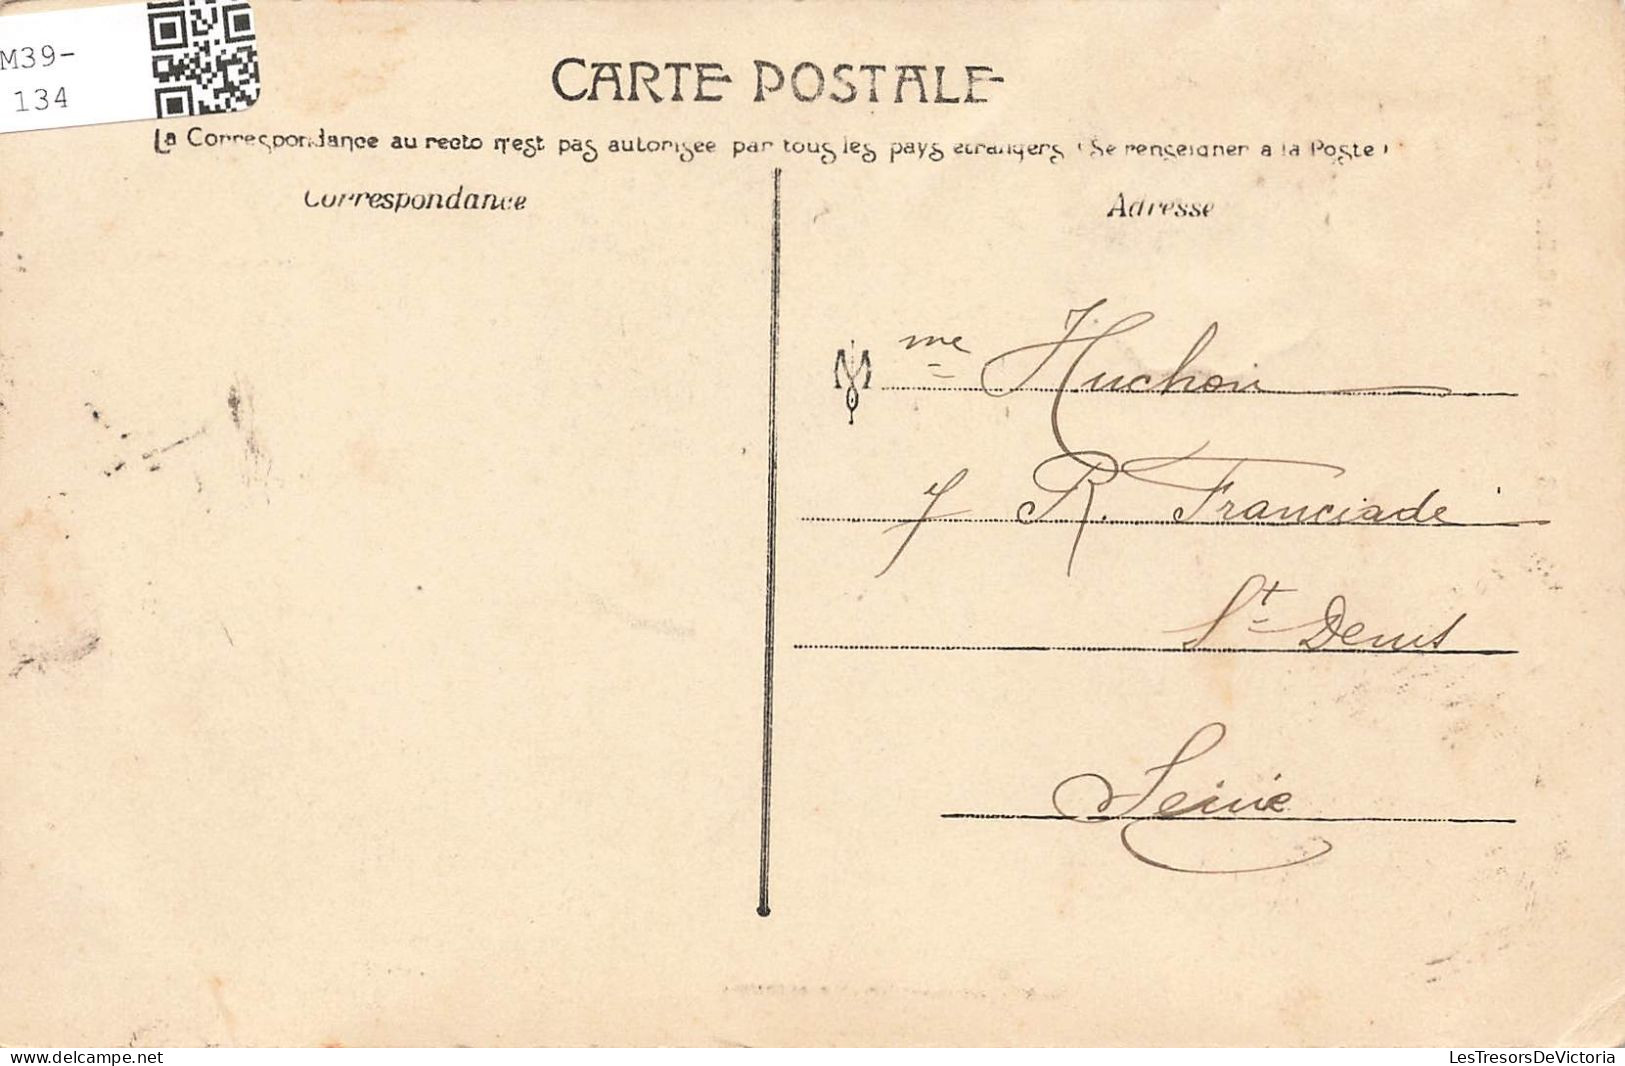 M39-
134
CARTE POSTALE
La Correspondance au recto n'est pas autorisée par tous les pays étrangers (Se renseigner a la Poste)
Correspondance
Adresse
Mme Huchon
7 R. Franciade
St Denis
Seine
delcampe.net
LesTresorsDeVictoria